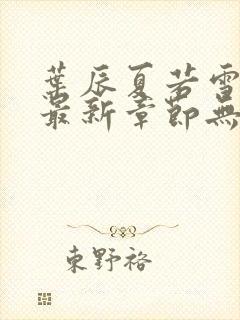 葉辰夏若雪
最新章節無
東野裕